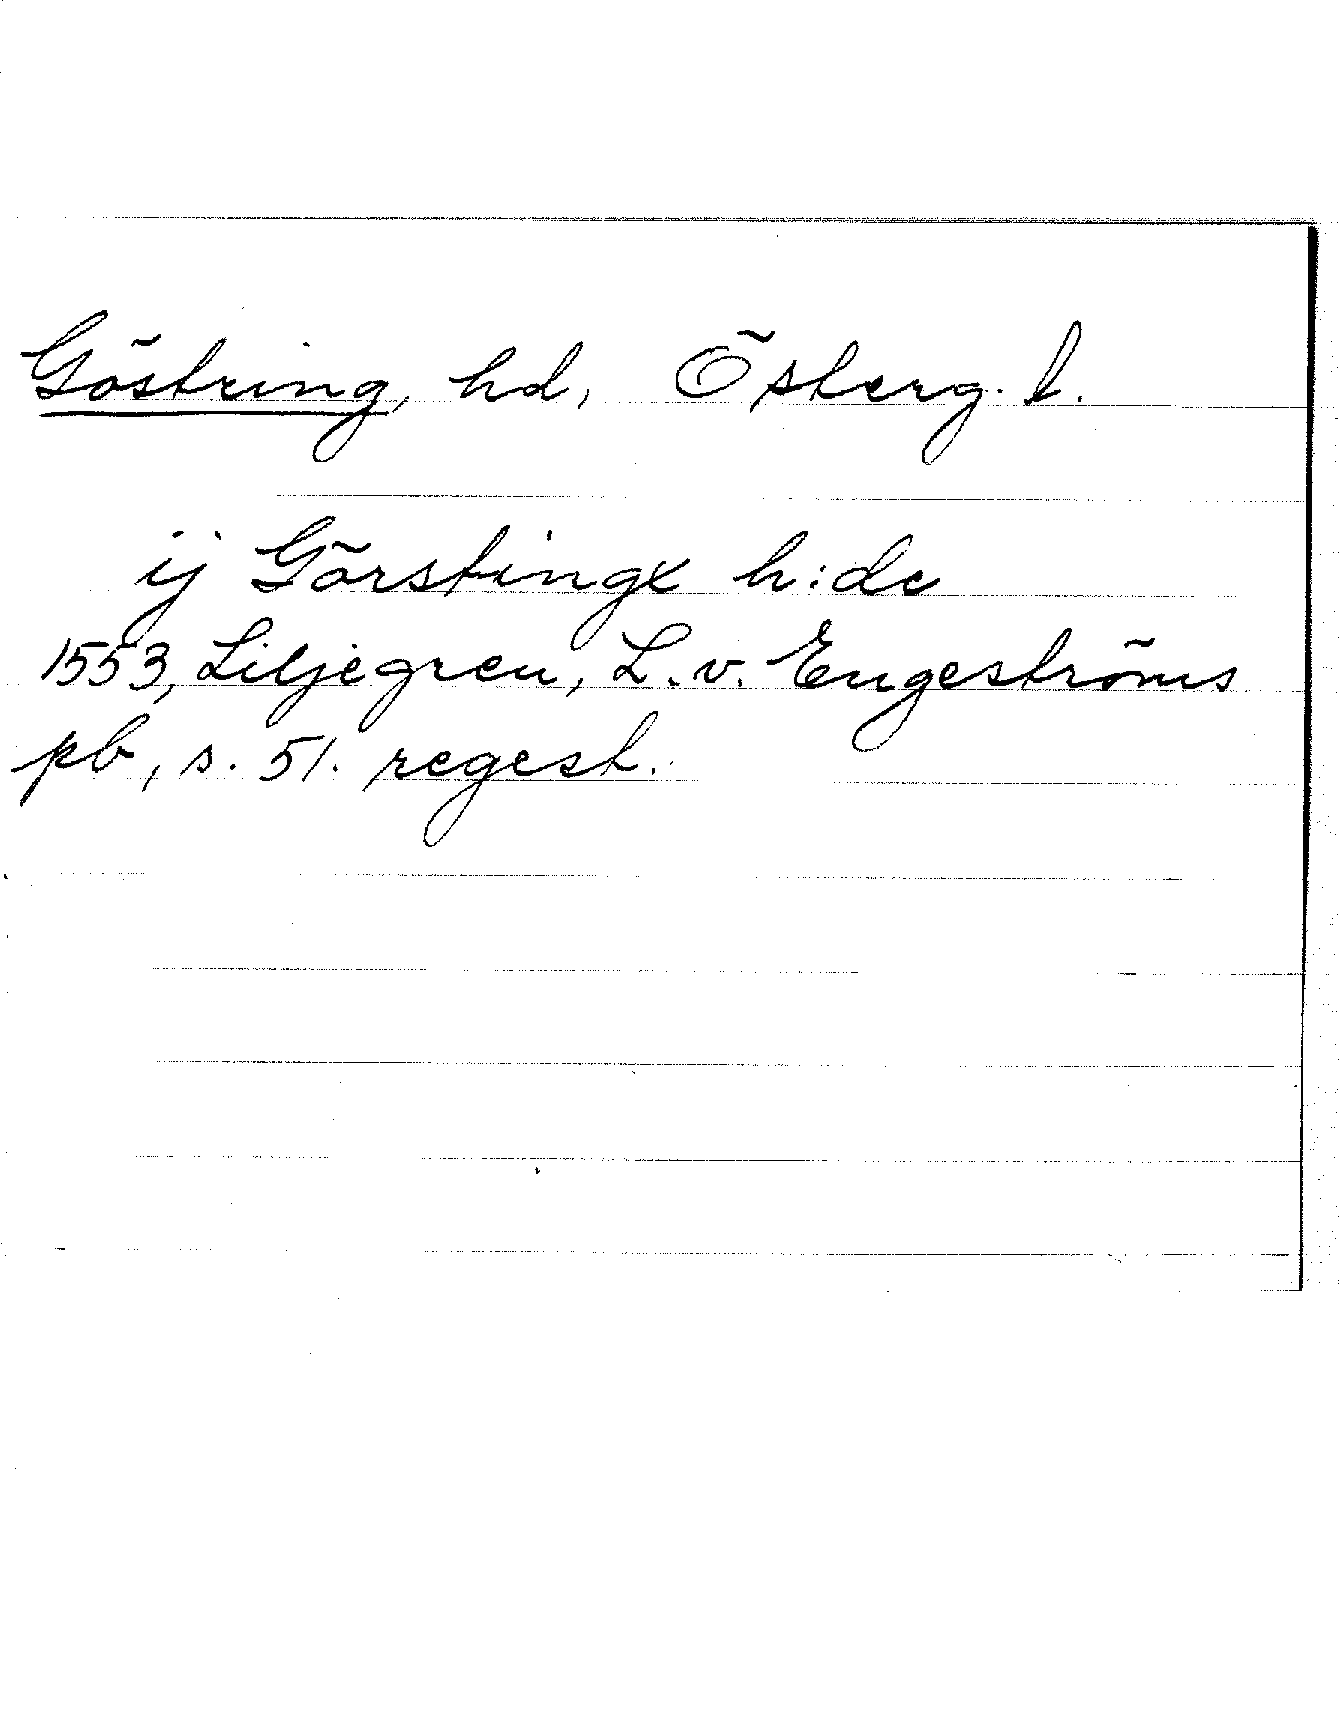 Göstring, hd, Österg. l.
ij Görstingx h:de
1553, Liljegren, L. v. Engeströms
pb, s. 51. regest.